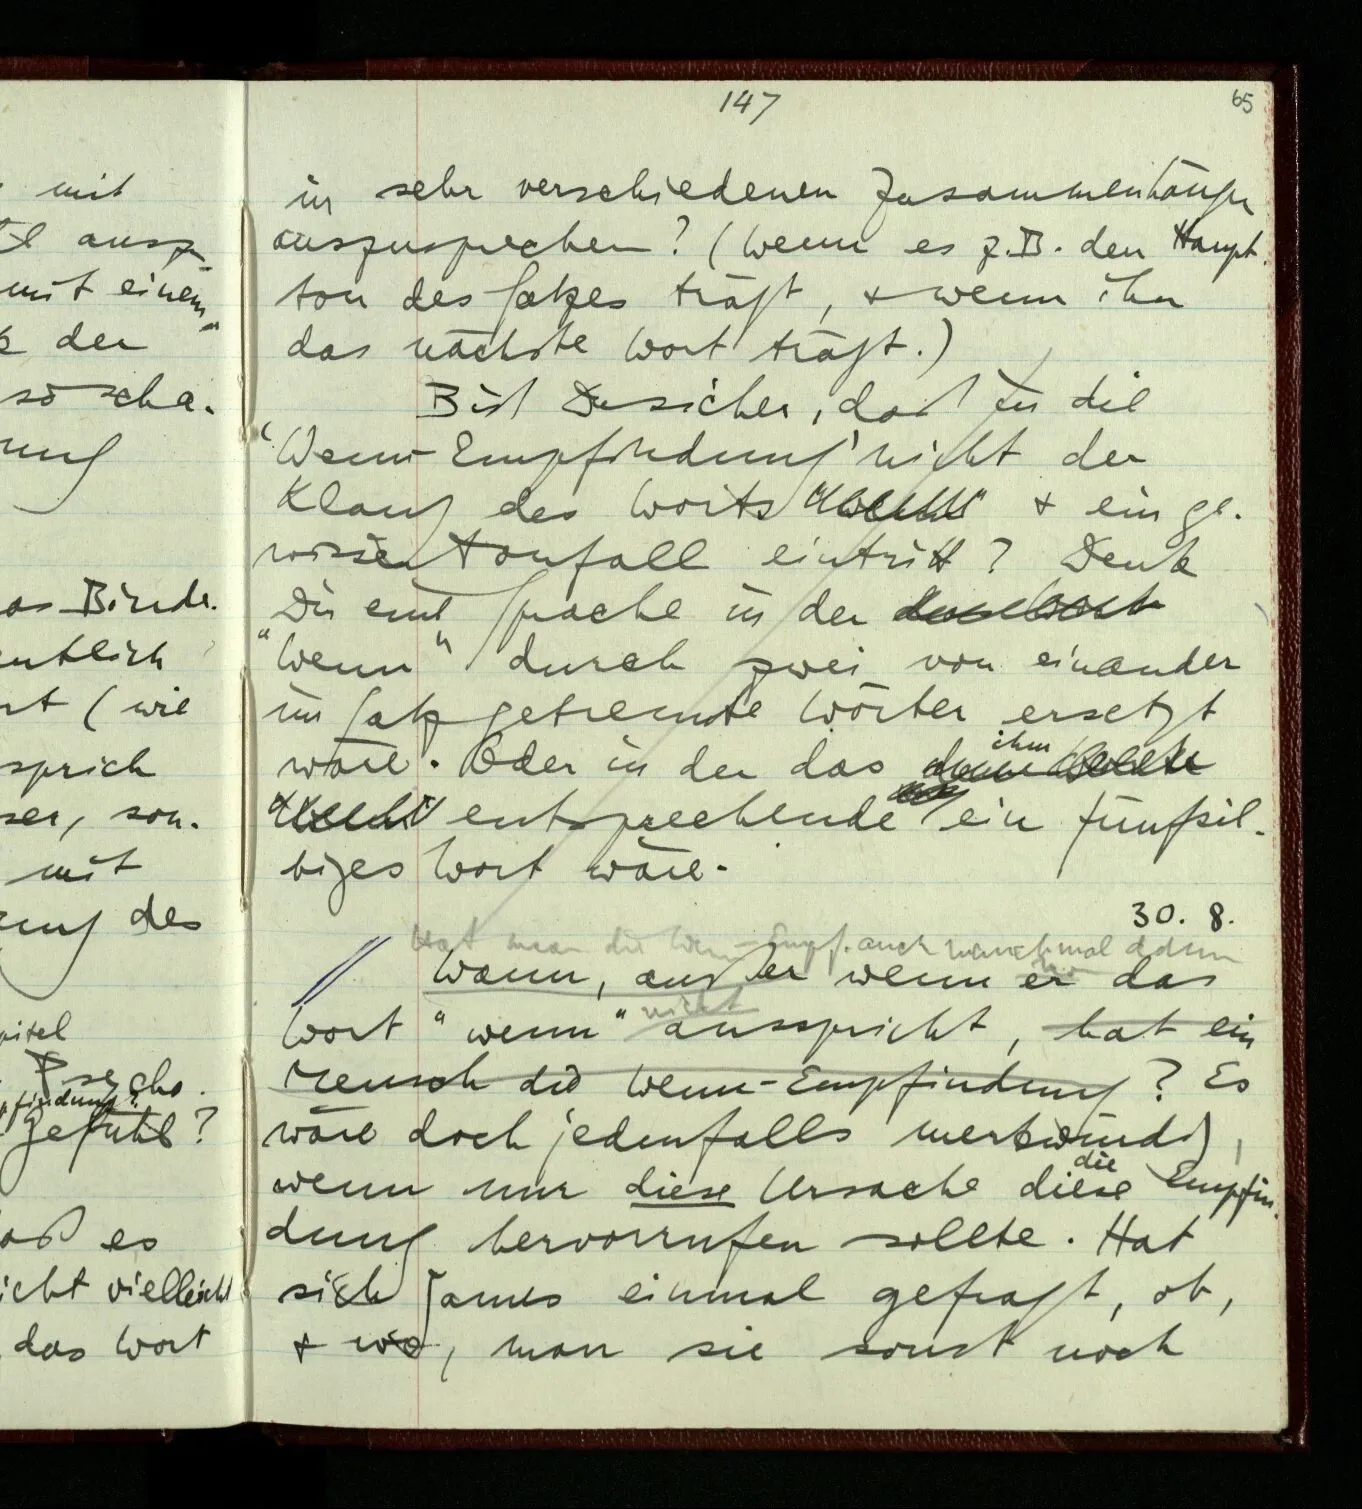 147
65
in sehr verschiedenen Zusammenhängen
auszusprechen? (Wenn es z.B. den Haupt-
ton des Satzes trägt, & wenn ihn
das nächste Wort trägt.)
Bist Du sicher, daß in die
'Wenn-Empfindung' nicht der
Klang des Worts "Wenn" & ein ge-
wisser Tonfall eintritt? Denk
Dir eine Sprache in der das Wort
"Wenn" durch zwei von einander
im Satz getrennte Wörter ersetzt
wäre. Oder in der das ihm
"Wenn" entsprechende ein fünfsil-
biges Wort wäre.
30. 8.
Hat man die Wenn-Empf. auch manchmal
Wann, außer wenn er das
nicht
Wort "wenn" ausspricht, hat ein
Mensch die Wenn-Empfindung? Es
wäre doch jedenfalls merkwürdig,
die
wenn nur diese Ursache diese Empfin-
dung hervorrufen sollte. Hat
sich James einmal gefragt, ob,
& wo, man sie sonst noch
mit
mit einem
der
so scha-
wie
sprich
ser, son-
mit
des
Psycho-
Gefühl?
es
vielleicht
das Wort